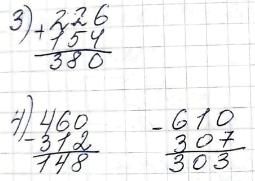 3) + 226
154
380
4) - 460
312
148
- 610
307
303